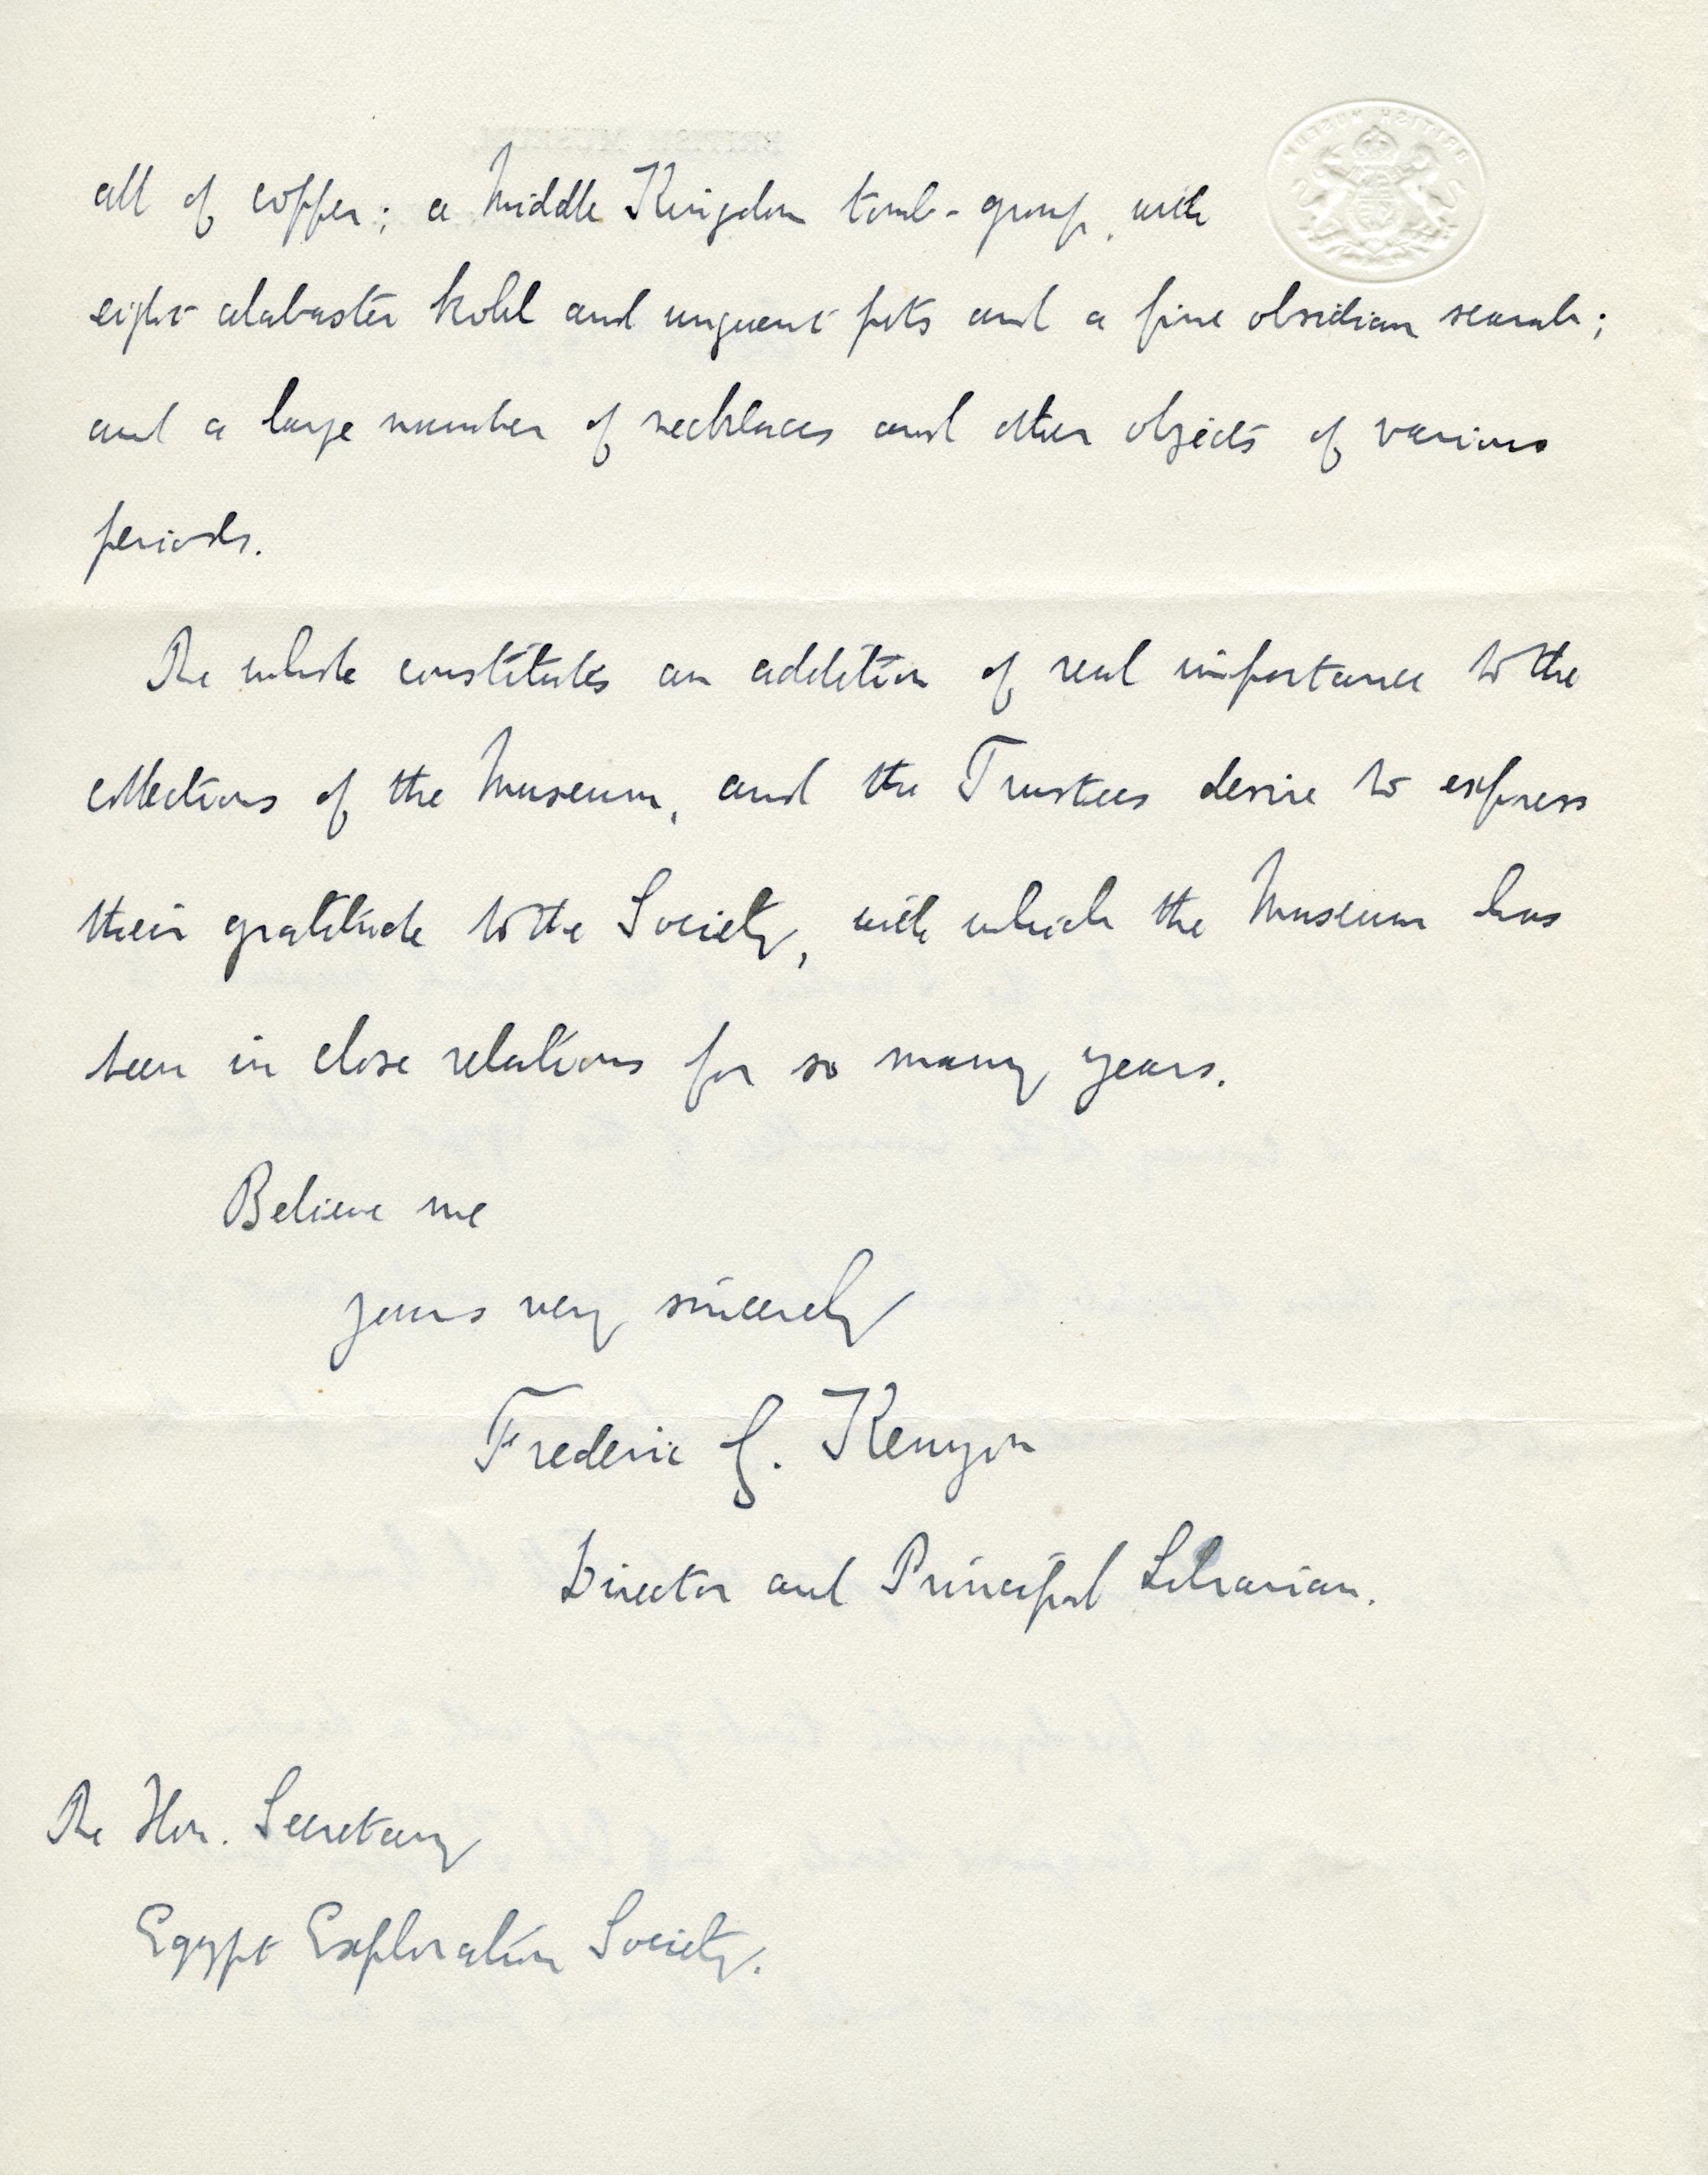 BRITISH MUSEUM
all of copper; a Middle Kingdom tomb-group, with
eight alabaster kohl and unguent pots and a fine obsidian scarab;
and a large number of necklaces and other objects of various
periods.
The whole constitutes an addition of real importance to the
collections of the Museum, and the Trustees desire to express
their gratitude to the Society, with which the Museum has
been in close relations for so many years.
Believe me
yours very sincerely
Frederic G. Kenyon
Director and Principal Librarian.
The Hon. Secretary
Egypt Exploration Society.